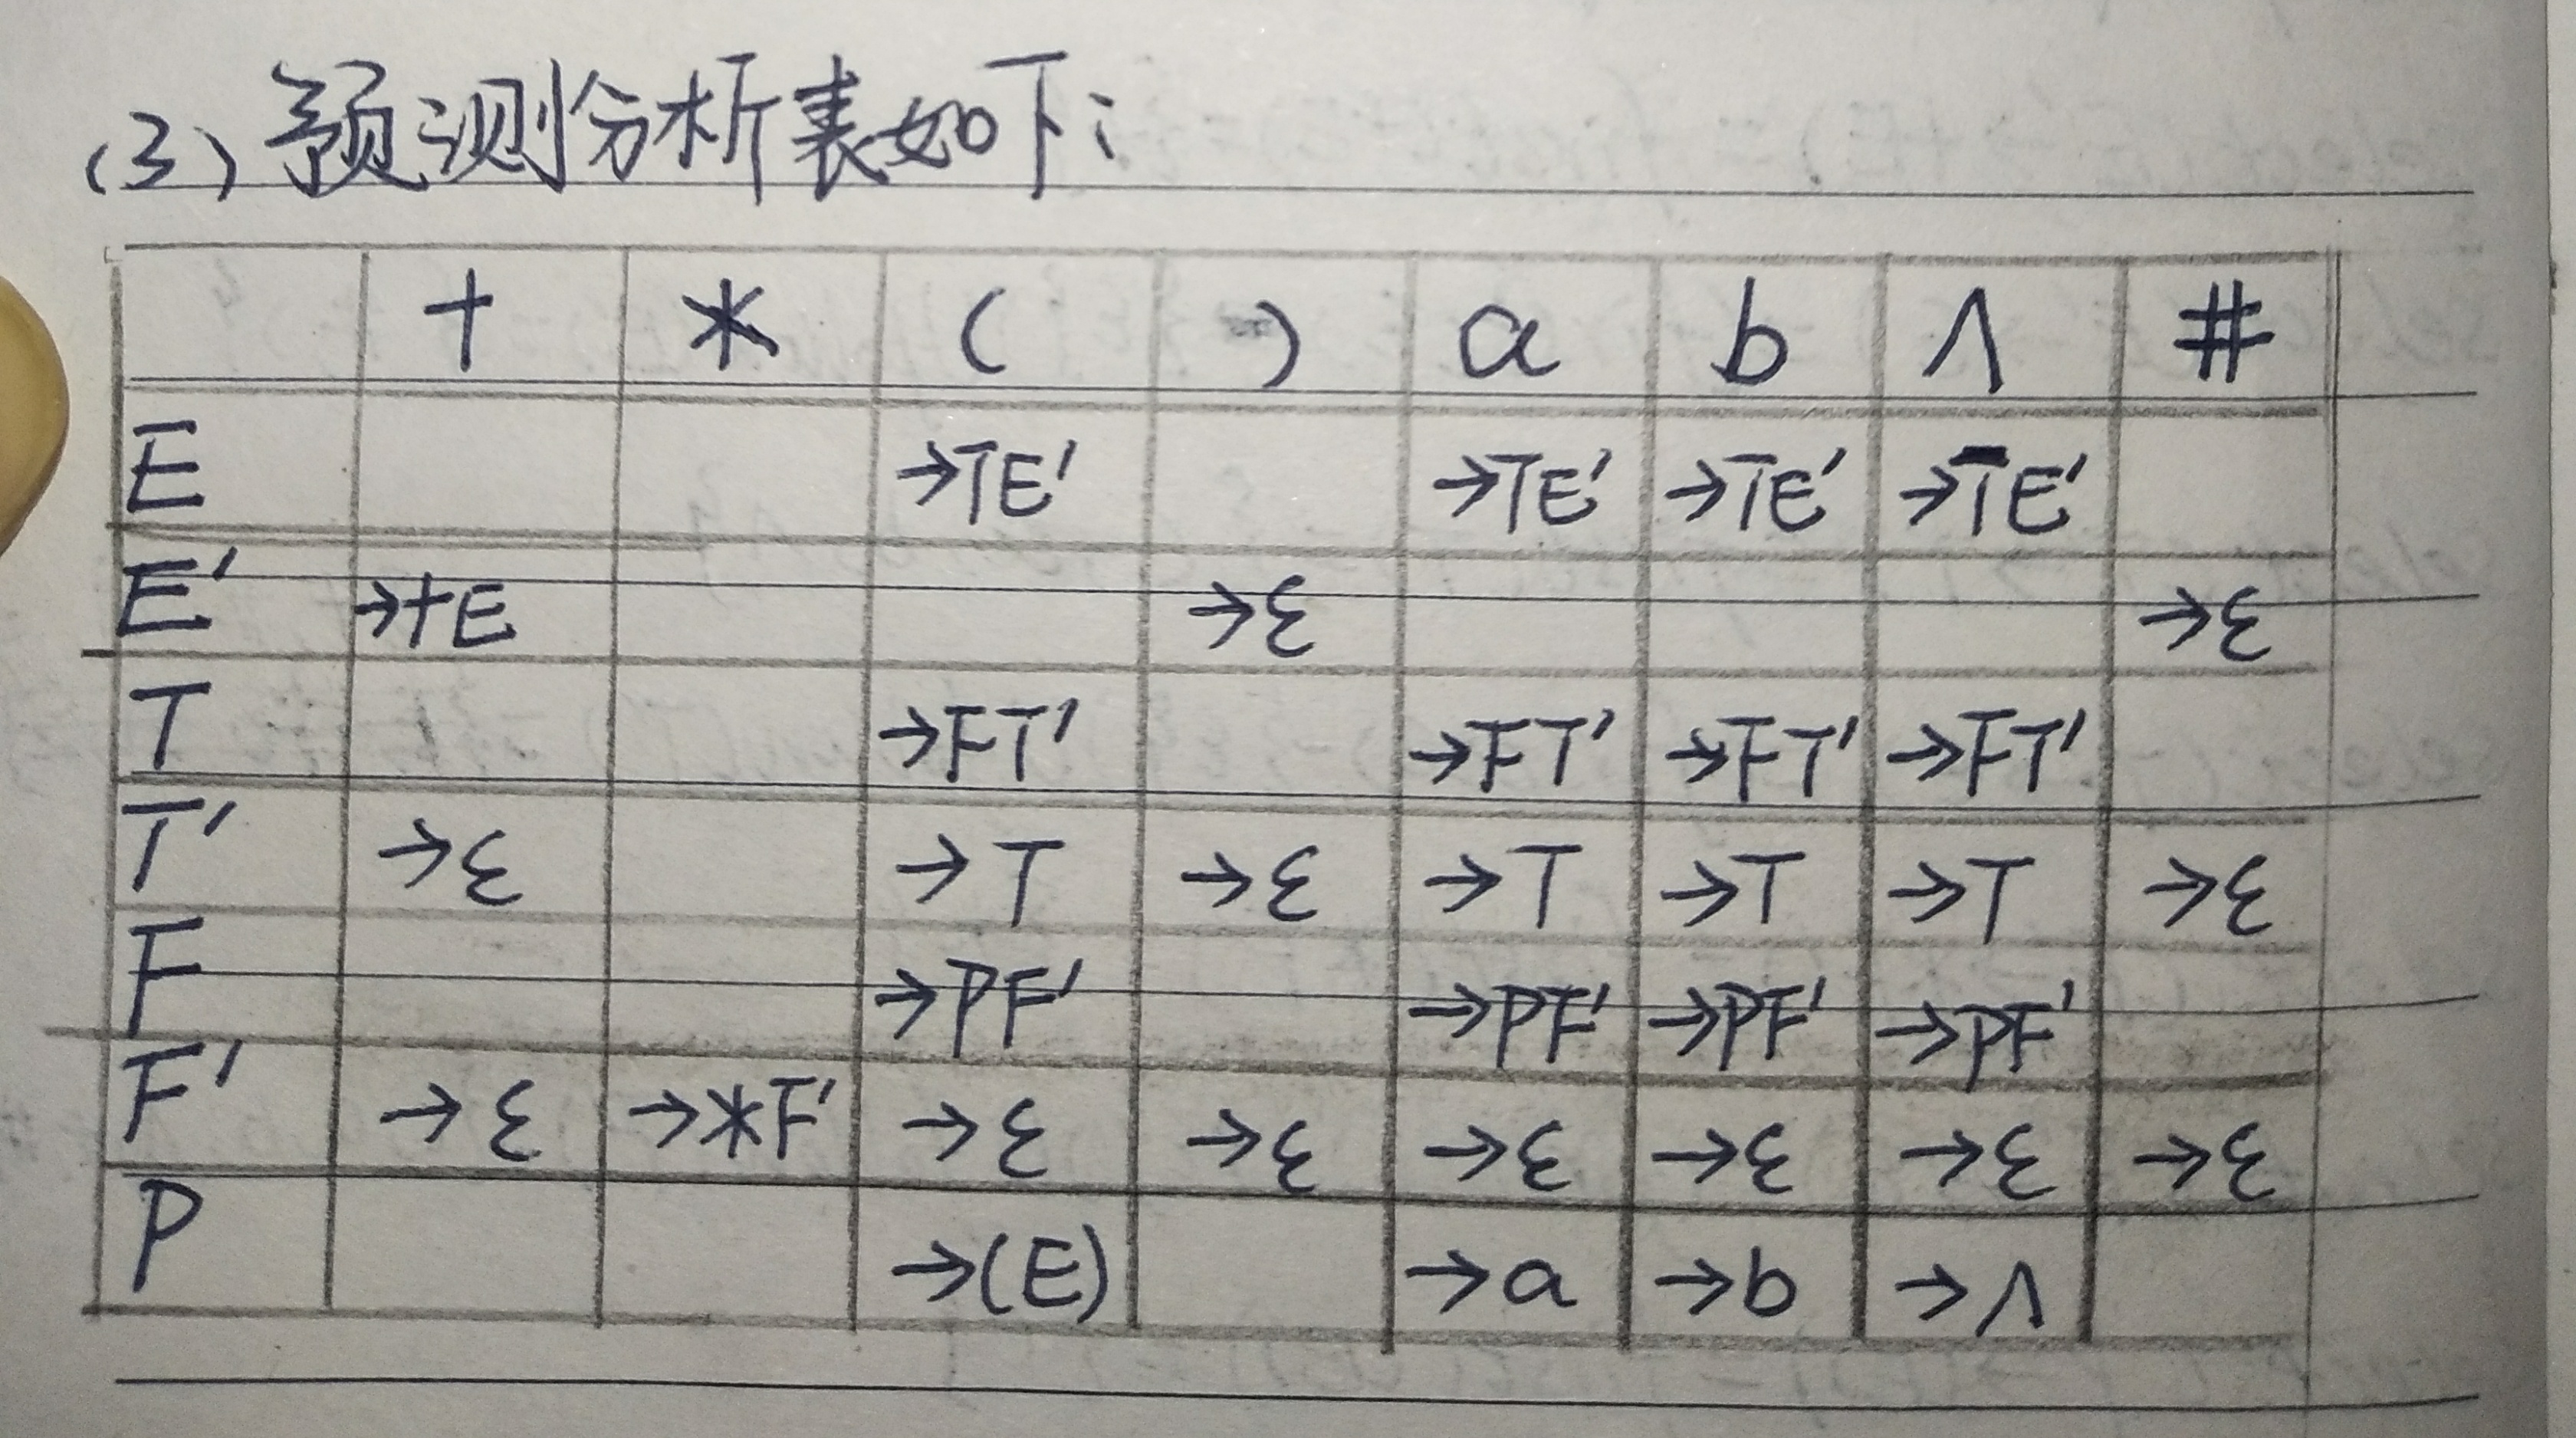 (3) 预测分析表如下:
+ * ( ) a b ∧ #
E →TE' →TE' →TE' →TE'
E' →+E →ε →ε
T →FT' →FT' →FT' →FT'
T' →ε →T →ε →T →T →T →ε
F →PF' →PF' →PF' →PF'
F' →ε →*F' →ε →ε →ε →ε →ε →ε
P →(E) →a →b →∧